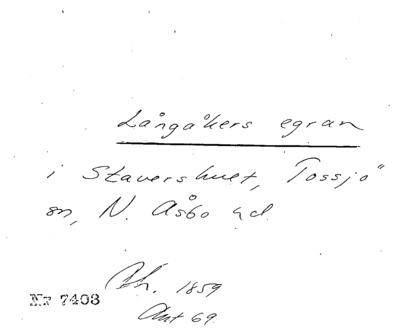 Långåkers egran
i Stavershult, Tossjö
sn, N. Åsbo hd.
Ark. 1859
Ant 69.
Nr 7403